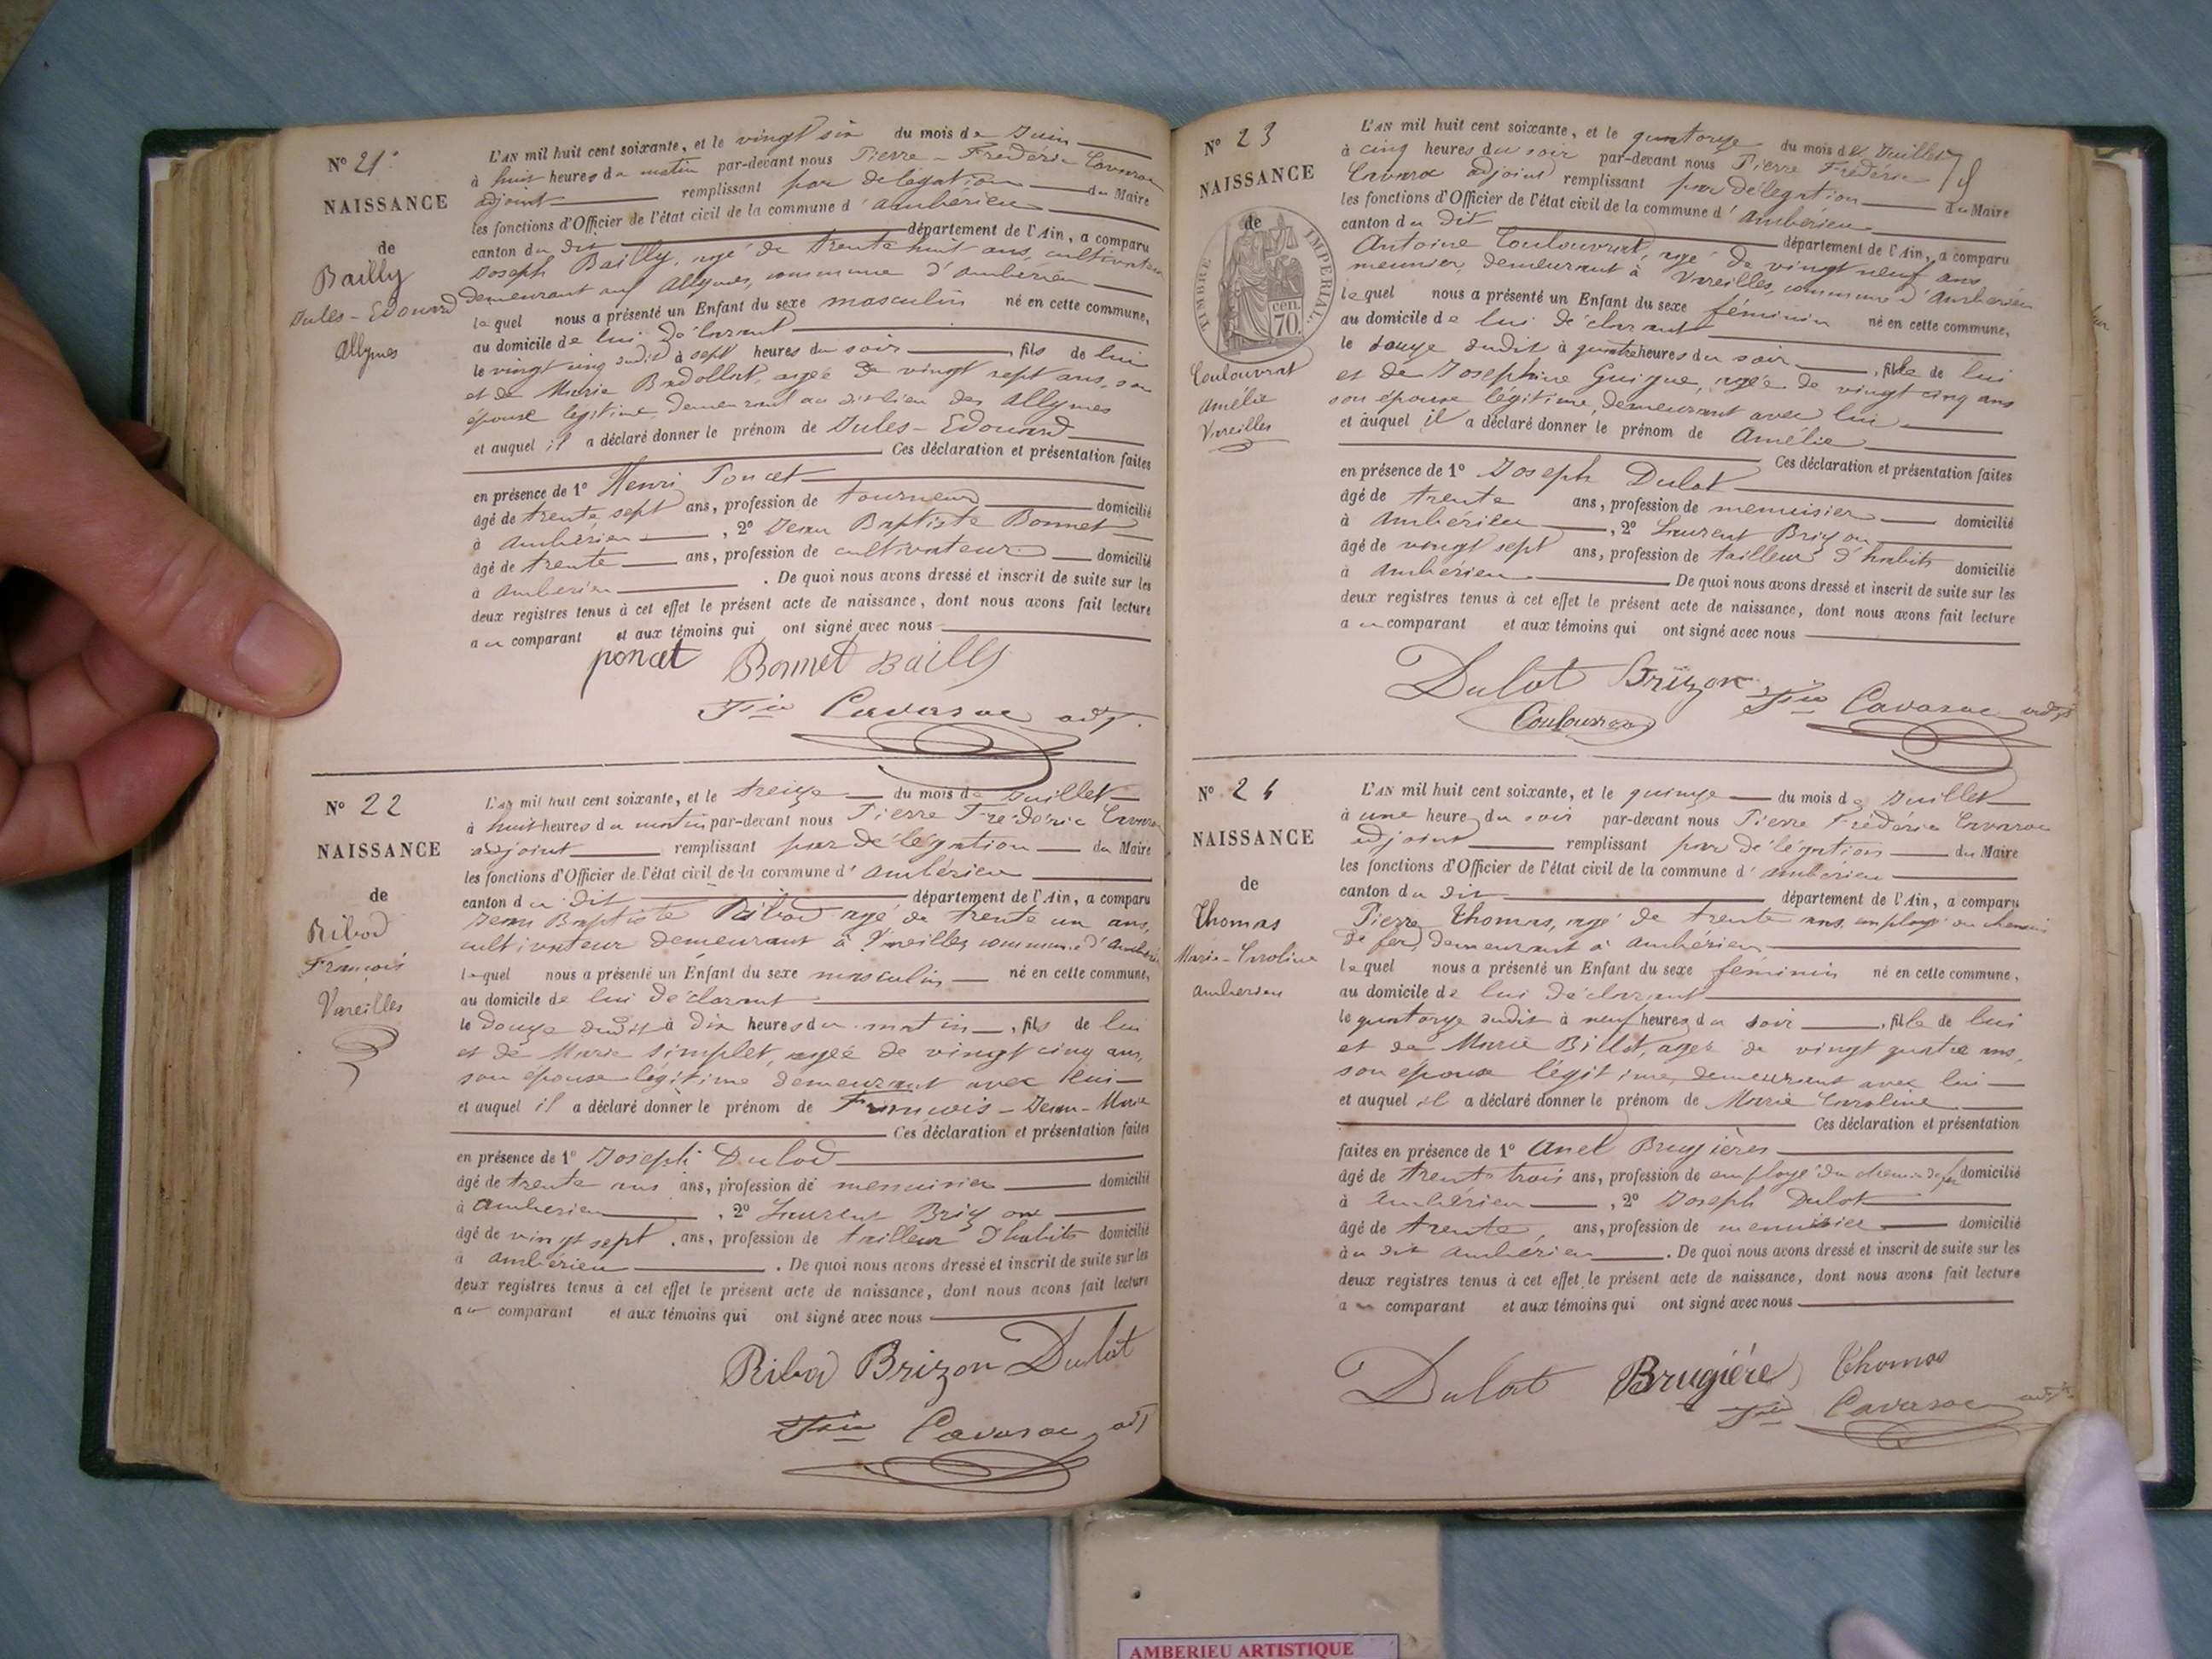 N° 21
NAISSANCE
de
Bailly
Jules-Edouard
Allymes
L'AN mil huit cent soixante, et le vingt six du mois de Juin
à huit heures du matin par-devant nous Pierre-Frédéric Cavaroc
adjoint remplissant par délégation du Maire
les fonctions d'Officier de l'état civil de la commune d'Ambérieu
canton du dit département de l'Ain, a comparu
Joseph Bailly, agé de trente huit ans, cultivateur
demeurant aux Allymes, commune d'Ambérieu
lequel nous a présenté un Enfant du sexe masculin né en cette commune,
au domicile de lui déclarant
le vingt cinq sudit à sept heures du soir, fils de lui
et de Marie Badollat, agée de vingt sept ans, son
épouse légitime, demeurant au dit lieu des Allymes
et auquel il a déclaré donner le prénom de Jules-Edouard
Ces déclaration et présentation faites
en présence de 1° Henri Poncet
âgé de trente sept ans, profession de tourneur domicilié
à Ambérieu, 2° Jean Baptiste Bonnet
âgé de trente ans, profession de cultivateur domicilié
à Ambérieu. De quoi nous avons dressé et inscrit de suite sur les
deux registres tenus à cet effet le présent acte de naissance, dont nous avons fait lecture
au comparant et aux témoins qui ont signé avec nous
poncet Bonnet Bailly
Cavaroc adjt
N° 22
NAISSANCE
de
Ribod
François
Vareilles
L'an mil huit cent soixante, et le treize du mois de Juillet
à huit heures du matin par-devant nous Pierre Frédéric Cavaroc
adjoint remplissant par délégation du Maire
les fonctions d'Officier de l'état civil de la commune d'Ambérieu
canton du dit département de l'Ain, a comparu
Jean Baptiste Ribod agé de trente un ans,
cultivateur demeurant à Vareilles commune d'Ambérieu
lequel nous a présenté un Enfant du sexe masculin né en cette commune,
au domicile de lui déclarant
le douze sudit à dix heures du matin, fils de lui
et de Marie Simplet, agée de vingt cinq ans,
son épouse légitime demeurant avec lui
et auquel il a déclaré donner le prénom de François-Jean-Marie
Ces déclaration et présentation faites
en présence de 1° Joseph Dulod
âgé de trente ans ans, profession de menuisier domicilié
à Ambérieu, 2° Laurent Brizon
âgé de vingt sept ans, profession de tailleur d'habits domicilié
à Ambérieu. De quoi nous avons dressé et inscrit de suite sur les
deux registres tenus à cet effet le présent acte de naissance, dont nous avons fait lecture
au comparant et aux témoins qui ont signé avec nous
Ribod Brizon Dulot
Cavaroc adjt
N° 23
NAISSANCE
de
TIMBRE IMPERIAL
70 cen.
Coulouvrat
Amélie
Vareilles
L'AN mil huit cent soixante, et le quatorze du mois de Juillet
à cinq heures du soir par-devant nous Pierre Frédéric
Cavaroc adjoint remplissant par délégation du Maire
les fonctions d'Officier de l'état civil de la commune d'Ambérieu
canton du dit département de l'Ain, a comparu
Antoine Coulouvrat, agé de vingt neuf ans,
meunier, demeurant à Vareilles, commune d'Ambérieu
lequel nous a présenté un Enfant du sexe féminin né en cette commune,
au domicile de lui déclarant
le douze sudit à quatre heures du soir, fille de lui
et de Josephine Guigue, agée de vingt cinq ans
son épouse légitime, demeurant avec lui
et auquel il a déclaré donner le prénom de Amélie
Ces déclaration et présentation faites
en présence de 1° Joseph Dulot
âgé de trente ans, profession de menuisier domicilié
à Ambérieu, 2° Laurent Brizon
âgé de vingt sept ans, profession de tailleur d'habits domicilié
à Ambérieu De quoi nous avons dressé et inscrit de suite sur les
deux registres tenus à cet effet le présent acte de naissance, dont nous avons fait lecture
au comparant et aux témoins qui ont signé avec nous
Dulot Brizon Cavaroc adjt
Coulouvrat
N° 24
NAISSANCE
de
Thomas
Marie-Caroline
Ambérieu
L'AN mil huit cent soixante, et le quinze du mois de Juillet
à une heure du soir par-devant nous Pierre Frédéric Cavaroc
adjoint remplissant par délégation du Maire
les fonctions d'Officier de l'état civil de la commune d'Ambérieu
canton du dit département de l'Ain, a comparu
Pierre Thomas, agé de trente ans, employé au chemin
de fer, demeurant à Ambérieu
lequel nous a présenté un Enfant du sexe féminin né en cette commune,
au domicile de lui déclarant
le quatorze sudit à neuf heures du soir, fille de lui
et de Marie Billot, agée de vingt quatre ans,
son épouse légitime, demeurant avec lui
et auquel il a déclaré donner le prénom de Marie Caroline
Ces déclaration et présentation
faites en présence de 1° Anel Brugières
âgé de trente trois ans, profession de employé du chemin de fer domicilié
à Ambérieu, 2° Joseph Dulot
âgé de trente, ans, profession de menuisier domicilié
au dit Ambérieu. De quoi nous avons dressé et inscrit de suite sur les
deux registres tenus à cet effet le présent acte de naissance, dont nous avons fait lecture
au comparant et aux témoins qui ont signé avec nous
Dulot Brugiére Thomas
Cavaroc adjt
AMBERIEU ARTISTIQUE